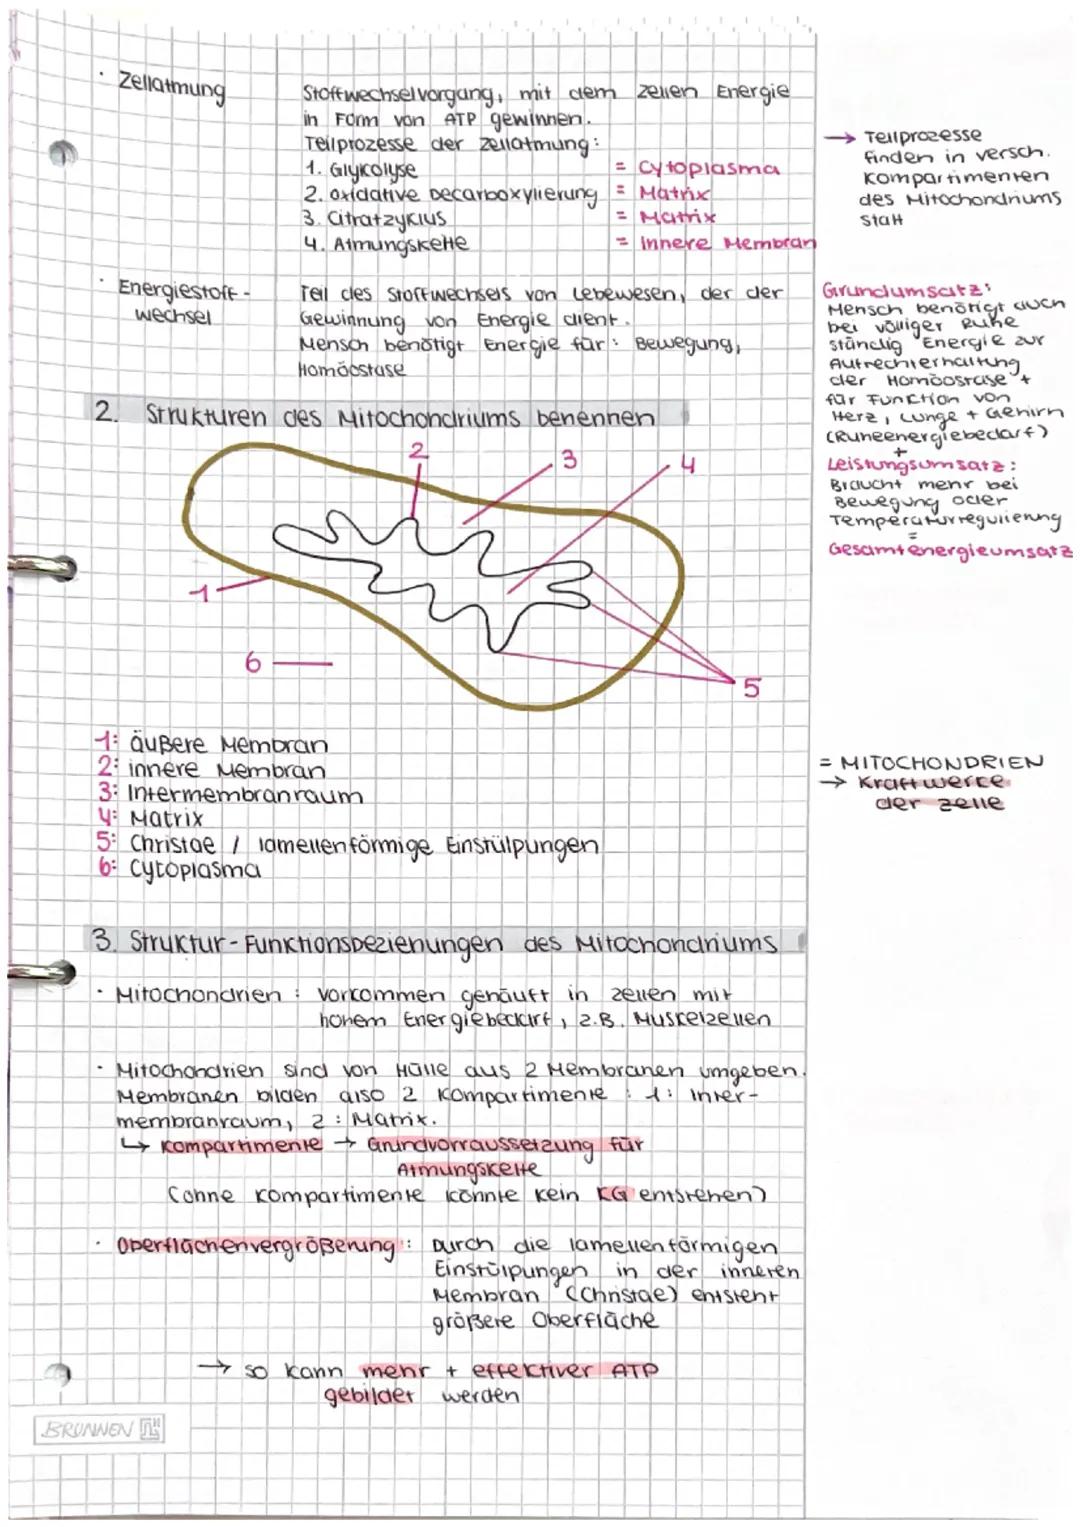 · Zellatmung
Stoffwechselvorgang, mit dem Zellen Energie
in Form von ATP gewinnen.
Teilprozesse der Zellatmung:
1. Glykolyse = Cytoplasma
2. oxidative Decarboxylierung = Matrix
3. Citratzyklus = Matrix
4. Atmungskette = Innere Membran
→ Teilprozesse
finden in versch.
Kompartimenten
des Mitochondriums
statt
· Energiestoff-
wechsel
Teil des Stoffwechsels von Lebewesen, der der
Gewinnung von Energie dient.
Mensch benötigt Energie für: Bewegung,
Homöostase
Grundumsatz:
Mensch benötigt auch
bei völliger Ruhe
ständig Energie zur
Aufrechterhaltung
der Homöostase +
für Function von
Herz, Lunge + Gehirn
(Ruheenergiebedarf)
+
Leistungsumsatz:
Braucht mehr bei
Bewegung oder
Temperaturregulierung
=
Gesamtenergieumsatz
2. Strukturen des Mitochondriums benennen
2
3
4
1
6
5
1: äußere Membran
2: innere Membran
3: Intermembranraum
4: Matrix
5: Christae / lamellenförmige Einstülpungen
6: Cytoplasma
= MITOCHONDRIEN
→ Kraftwerke
der Zelle
3. Struktur-Funktionsbeziehungen des Mitochondriums
· Mitochondrien: Vorkommen gehäuft in Zellen mit
hohem Energiebedarf, z.B. Muskelzellen
· Mitochondrien sind von Hülle aus 2 Membranen umgeben.
Membranen bilden also 2 Kompartimente: 1: Inter-
membranraum, 2: Matrix.
↳ Kompartimente → Grundvorraussetzung für
Atmungskette
(ohne Kompartimente könnte kein KG entstehen)
· Oberflächenvergrößerung: Durch die lamellenförmigen
Einstülpungen in der inneren
Membran (Christae) entsteht
größere Oberfläche
→ so kann mehr + effektiver ATP
gebildet werden
BRUNNEN